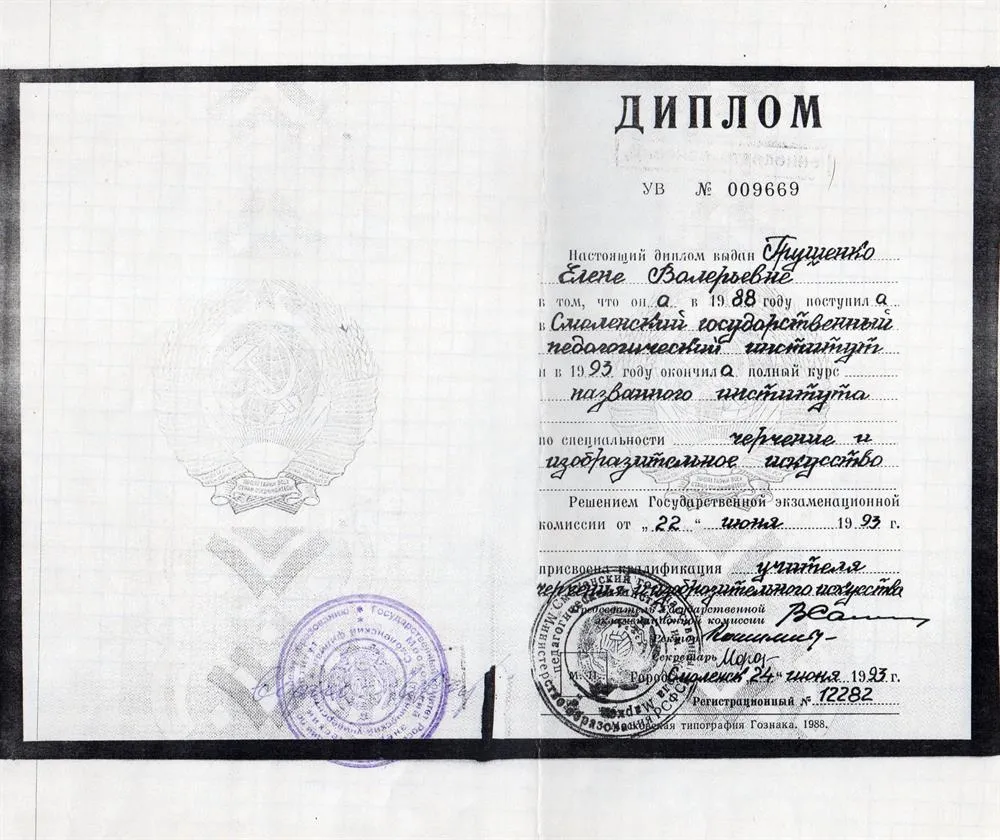 ДИПЛОМ
УВ № 009669
Настоящий диплом выдан Грушенко
Елене Валерьевне
в том, что он а в 1988 году поступил а
в Смоленский государственный
педагогический институт
и в 1993 году окончил а полный курс
названного института
по специальности черчение и
изобразительное искусство
Решением Государственной экзаменационной
комиссии от „22“ июня 1993 г.
присвоена квалификация учителя
черчения и изобразительного искусства
Председатель Государственной
экзаменационной комиссии
Ректор
Секретарь
М. П. Город Смоленск „24“ июня 1993 г.
Регистрационный № 12282
Московская типография Гознака. 1988.